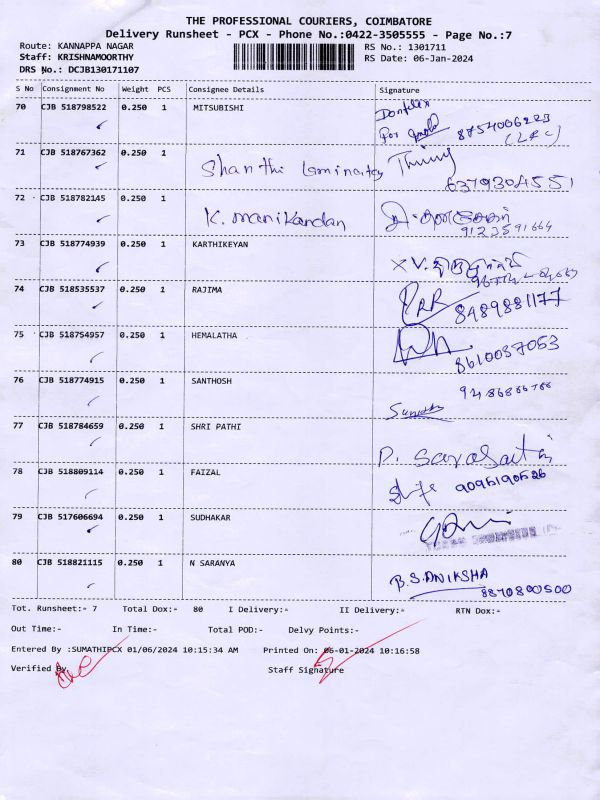 THE PROFESSIONAL COURIERS, COIMBATORE
Delivery Runsheet - PCX - Phone No.:0422-3505555 - Page No.:7
Route: KANNAPPA NAGAR
RS No.: 1301711
Staff: KRISHNAMOORTHY
RS Date: 06-Jan-2024
DRS No.: DCJB130171107
S No Consignment No Weight PCS Consignee Details Signature
70 CJB 518798522 0.250 1 MITSUBISHI
8754006223
71 CJB 518767362 0.250 1 Shanthi
6379304551
72 CJB 518782145 0.250 1 K. Manikandan
9123591664
73 CJB 518774939 0.250 1 KARTHIKEYAN
74 CJB 518535537 0.250 1 RAJIMA
8489881177
75 CJB 518754957 0.250 1 HEMALATHA
8610037053
76 CJB 518774915 0.250 1 SANTHOSH
77 CJB 518784659 0.250 1 SHRI PATHI
78 CJB 518809114 0.250 1 FAIZAL
9095190526
79 CJB 517606694 0.250 1 SUDHAKAR
80 CJB 518821115 0.250 1 N SARANYA B.S.ANIKSHA
8870800500
Tot. Runsheet:- 7 Total Dox:- 80 I Delivery:- II Delivery:- RTN Dox:-
Out Time:- In Time:- Total POD:- Delvy Points:-
Entered By :SUMATHIPCX 01/06/2024 10:15:34 AM Printed On: 06-01-2024 10:16:58
Verified By Staff Signature